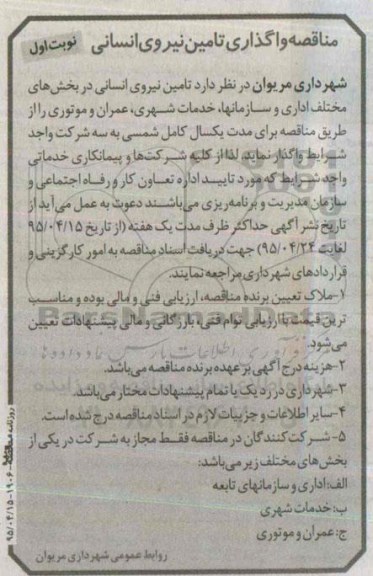 مناقصه واگذاری تامین نیروی انسانی
نوبت اول
شهرداری مریوان در نظر دارد تامین نیروی انسانی در بخش‌های
مختلف اداری و سازمانها، خدمات شهری، عمران و موتوری را از
طریق مناقصه برای مدت یکسال کامل شمسی به سه شرکت واجد
شرایط واگذار نماید. لذا از کلیه شرکت‌ها و پیمانکاری خدماتی
واجد شرایط که مورد تایید اداره تعاون کار و رفاه اجتماعی و
سازمان مدیریت و برنامه‌ریزی می‌باشند دعوت به عمل می‌آید از
تاریخ نشر آگهی حداکثر ظرف مدت یک هفته (از تاریخ ۹۵/۰۴/۱۵
لغایت ۹۵/۰۴/۲۴) جهت دریافت اسناد مناقصه به امور کارگزینی و
قراردادهای شهرداری مراجعه نمایند.
۱-ملاک تعیین برنده مناقصه، ارزیابی فنی و مالی بوده و مناسب
ترین قیمت با ارزیابی توام فنی، بازرگانی و مالی پیشنهادات تعیین
می‌شود.
۲-هزینه درج آگهی بر عهده برنده مناقصه می‌باشد.
۳-شهرداری در رد یک یا تمام پیشنهادات مختار می‌باشد.
۴-سایر اطلاعات و جزییات لازم در اسناد مناقصه درج شده است.
۵- شرکت کنندگان در مناقصه فقط مجاز به شرکت در یکی از
بخش‌های مختلف زیر می‌باشد:
الف: اداری و سازمانهای تابعه
ب: خدمات شهری
ج: عمران و موتوری
روابط عمومی شهرداری مریوان
۹۵/۰۴/۱۵-۱۹۰۶
ParsNamadData